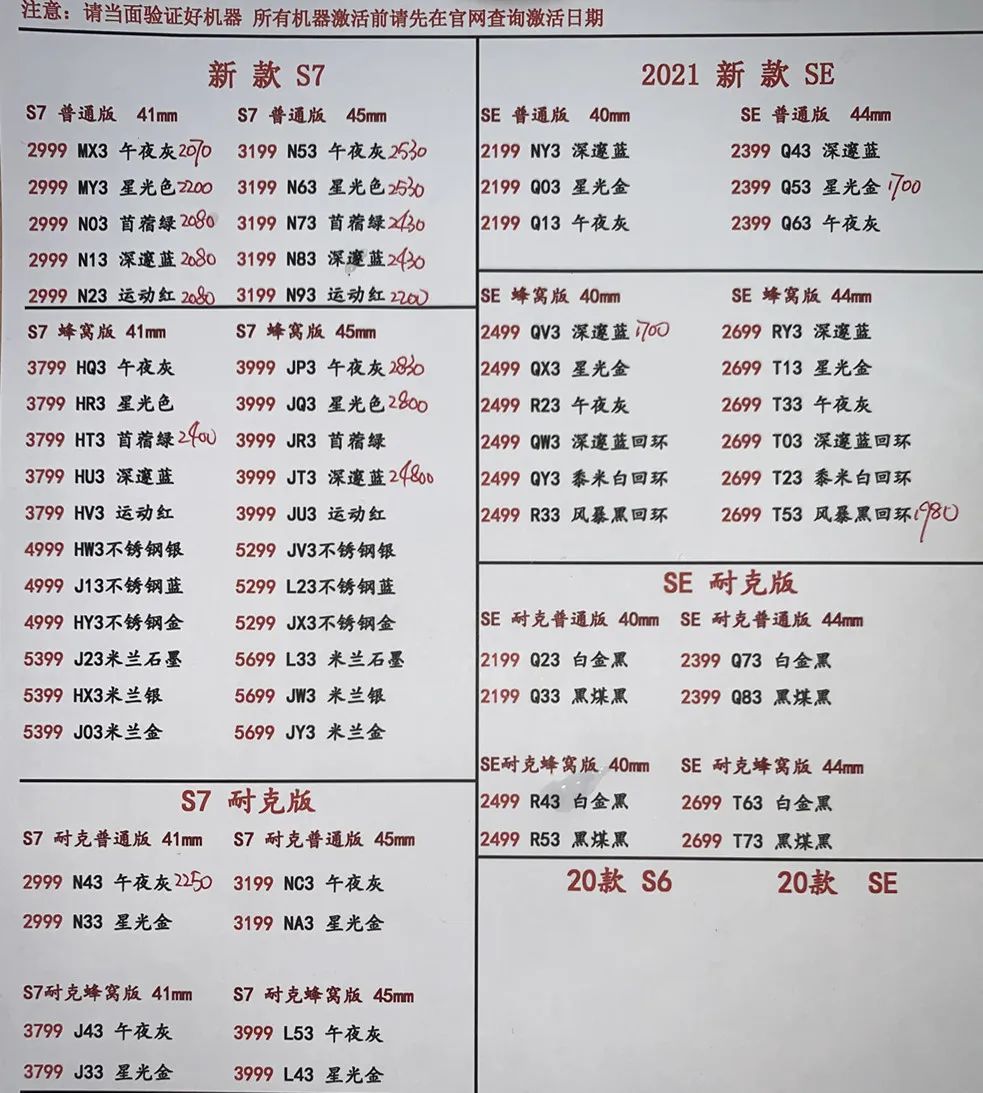 注意：请当面验证好机器 所有机器激活前请先在官网查询激活日期
新 款 S7
S7 普通版 41mm
2999 MX3 午夜灰2070
2999 MY3 星光色2200
2999 N03 首蓿绿2080
2999 N13 深邃蓝2080
2999 N23 运动红2080
S7 普通版 45mm
3199 N53 午夜灰2530
3199 N63 星光色2530
3199 N73 首蓿绿2430
3199 N83 深邃蓝2430
3199 N93 运动红2200
S7 蜂窝版 41mm
3799 HQ3 午夜灰
3799 HR3 星光色
3799 HT3 首蓿绿2400
3799 HU3 深邃蓝
3799 HV3 运动红
4999 HW3不锈钢银
4999 J13不锈钢蓝
4999 HY3不锈钢金
5399 J23米兰石墨
5399 HX3米兰银
5399 J03米兰金
S7 蜂窝版 45mm
3999 JP3 午夜灰2830
3999 JQ3 星光色2800
3999 JR3 首蓿绿
3999 JT3 深邃蓝24800
3999 JU3 运动红
5299 JV3不锈钢银
5299 L23不锈钢蓝
5299 JX3不锈钢金
5699 L33 米兰石墨
5699 JW3 米兰银
5699 JY3 米兰金
S7 耐克版
S7 耐克普通版 41mm
2999 N43 午夜灰2250
2999 N33 星光金
S7 耐克普通版 45mm
3199 NC3 午夜灰
3199 NA3 星光金
S7耐克蜂窝版 41mm
3799 J43 午夜灰
3799 J33 星光金
S7 耐克蜂窝版 45mm
3999 L53 午夜灰
3999 L43 星光金
2021 新 款 SE
SE 普通版 40mm
2199 NY3 深邃蓝
2199 Q03 星光金
2199 Q13 午夜灰
SE 普通版 44mm
2399 Q43 深邃蓝
2399 Q53 星光金1700
2399 Q63 午夜灰
SE 蜂窝版 40mm
2499 QV3 深邃蓝1700
2499 QX3 星光金
2499 R23 午夜灰
2499 QW3 深邃蓝回环
2499 QY3 黍米白回环
2499 R33 风暴黑回环
SE 蜂窝版 44mm
2699 RY3 深邃蓝
2699 T13 星光金
2699 T33 午夜灰
2699 T03 深邃蓝回环
2699 T23 黍米白回环
2699 T53 风暴黑回环1980
SE 耐克版
SE 耐克普通版 40mm
2199 Q23 白金黑
2199 Q33 黑煤黑
SE 耐克普通版 44mm
2399 Q73 白金黑
2399 Q83 黑煤黑
SE耐克蜂窝版 40mm
2499 R43 白金黑
2499 R53 黑煤黑
SE 耐克蜂窝版 44mm
2699 T63 白金黑
2699 T73 黑煤黑
20款 S6
20款 SE